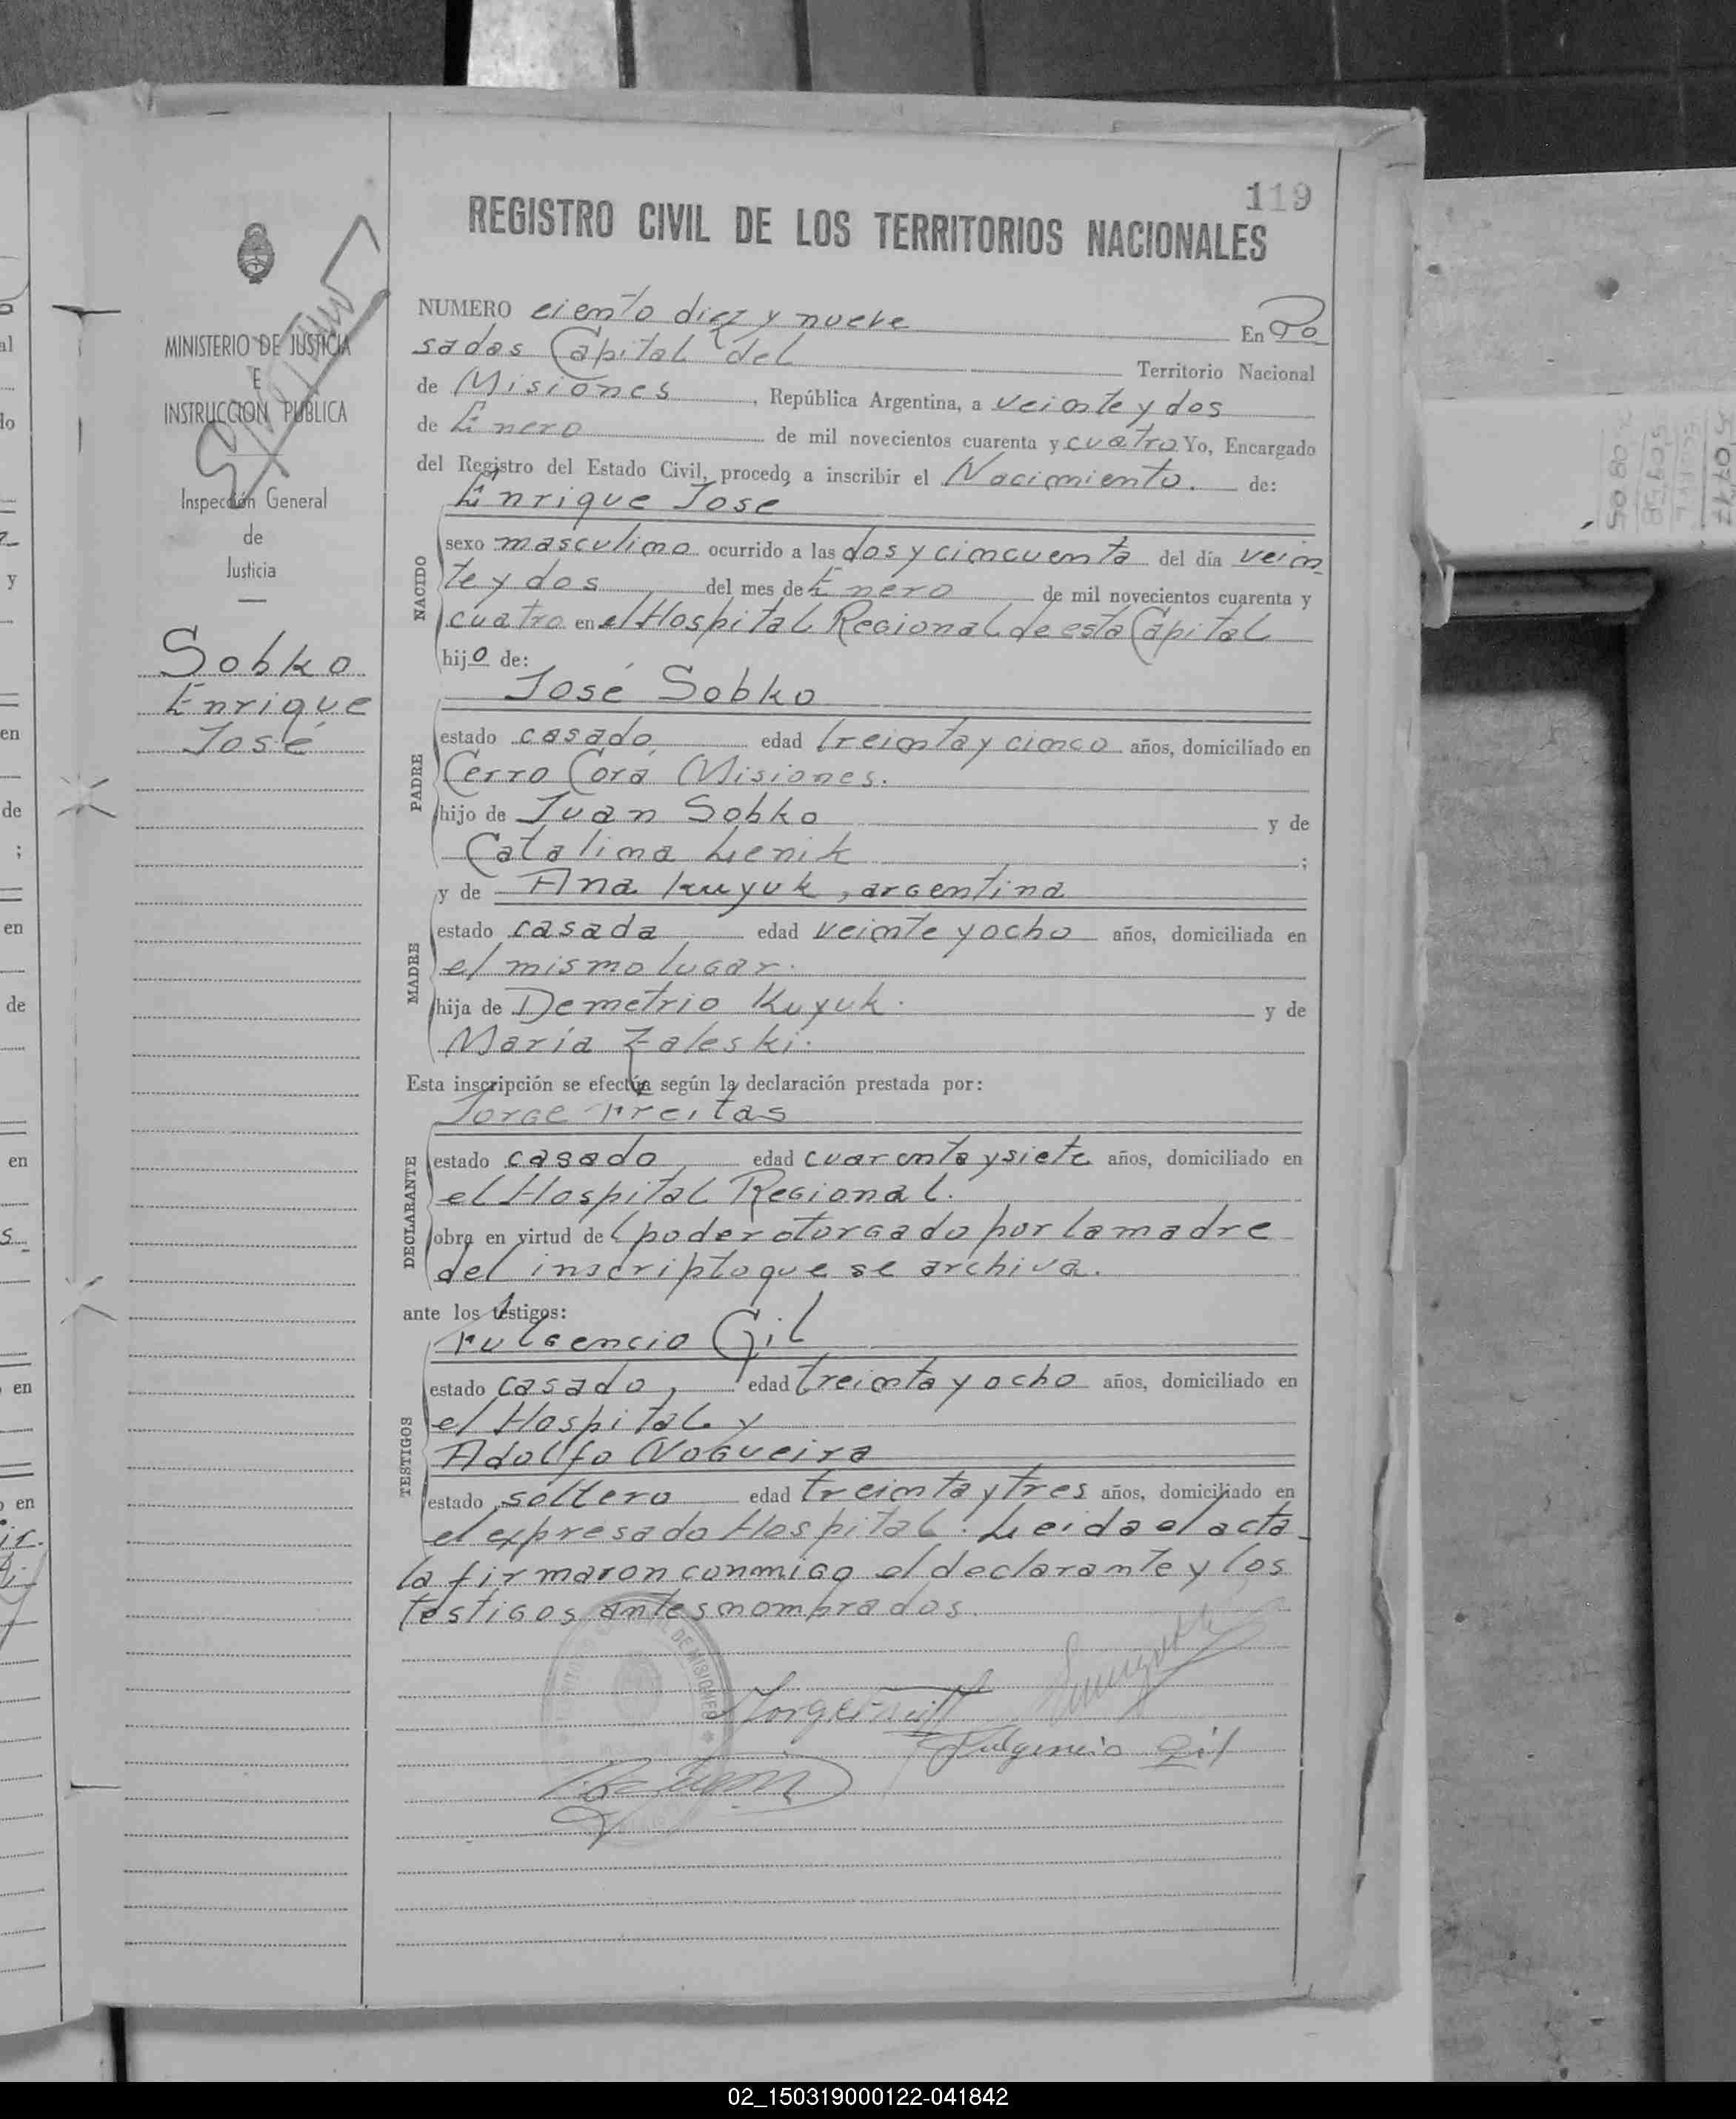 119
REGISTRO CIVIL DE LOS TERRITORIOS NACIONALES
MINISTERIO DE JUSTICIA
E
INSTRUCCION PUBLICA
Inspección General
de
Justicia
Sobko
Enrique
José
NUMERO ciento diez y nueve En Po
sadas Capital del Territorio Nacional
de Misiones, República Argentina, a veinte y dos
de Enero de mil novecientos cuarenta y cuatro Yo, Encargado
del Registro del Estado Civil, procedo a inscribir el Nacimiento. de:
Enrique José
NACIDO
sexo masculino ocurrido a las dos y cincuenta del día vein
te y dos del mes de Enero de mil novecientos cuarenta y
cuatro en el Hospital Regional de esta Capital
hijo de:
José Sobko
PADRE
estado casado, edad treinta y cinco años, domiciliado en
Cerro Corá Misiones.
hijo de Juan Sobko y de
Catalina Lenik ;
y de Ana Kuyuk, argentina
MADRE
estado casada edad veinte y ocho años, domiciliada en
el mismo lugar.
hija de Demetrio Kuyuk. y de
María Zaleski.
Esta inscripción se efectúa según la declaración prestada por:
Jorge Freitas
DECLARANTE
estado casado edad cuarenta y siete años, domiciliado en
el Hospital Regional.
obra en virtud del poder otorgado por la madre
del inscripto que se archiva.
ante los testigos:
Fulgencio Gil
TESTIGOS
estado casado, edad treinta y ocho años, domiciliado en
el Hospital y
Adolfo Nogueira
estado soltero edad treinta y tres años, domiciliado en
el expresado Hospital. Leida el acta
la firmaron conmigo el declarante y los
testigos antes nombrados.
DE MISIONES
Fulgencio Gil
02_150319000122-041842